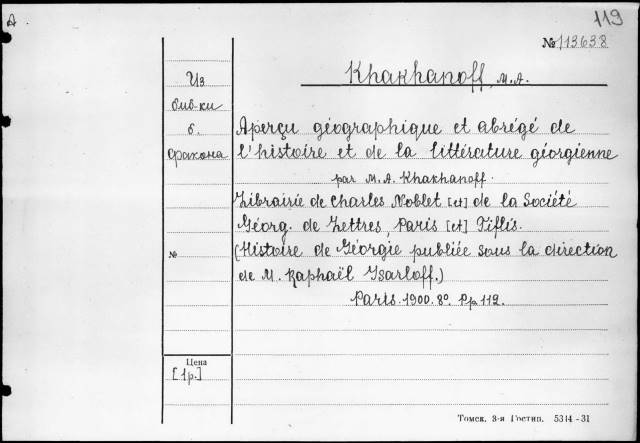 119
№ 113638
Khakhanoff, M.A.
Из
биб-ки
б.
Фрахона
Aperçu géographique et abrégé de
l'histoire et de la littérature géorgienne
par M.A. Khakhanoff.
Librairie de Charles Noblet [et] de la Société
Géorg. de Lettres, Paris [et] Tiflis.
(Histoire de Géorgie publiée sous la direction
de M. Raphaël Isarloff.)
Paris. 1900. 8º. Pp 112.
№
Цена
[1р.]
Томск. 3-я Гостип. 5314-31